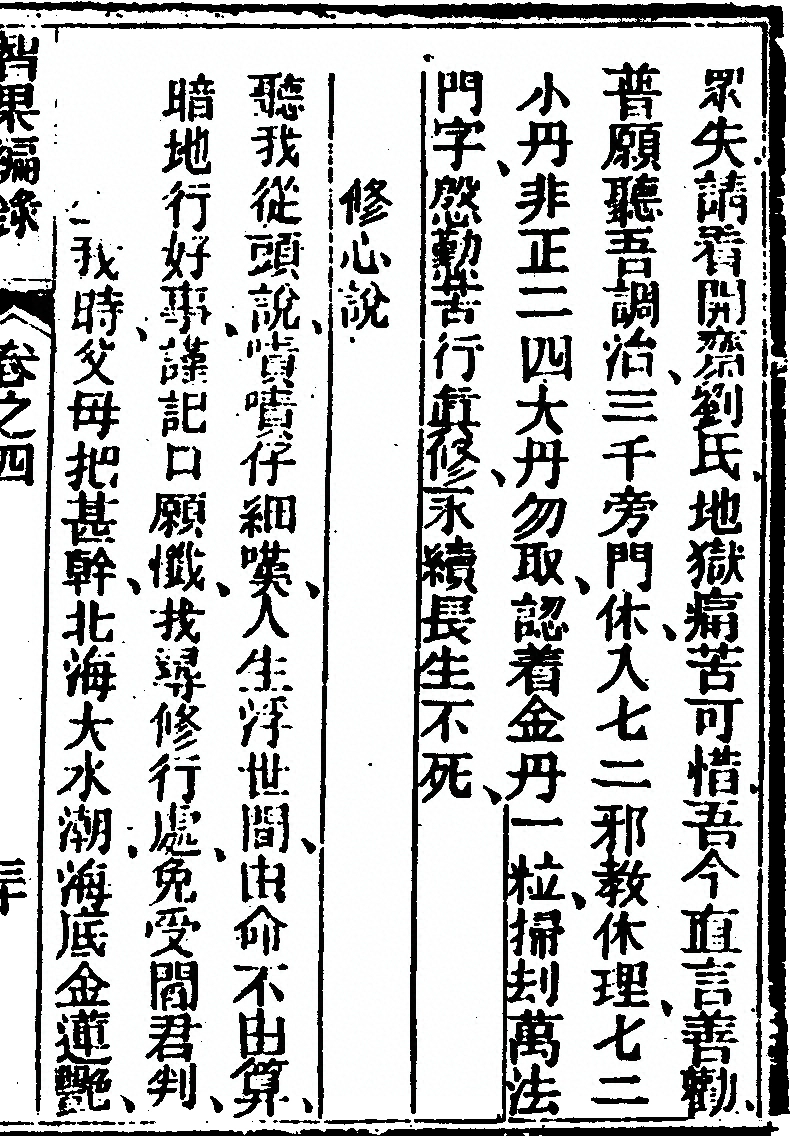 眾失請看開齋劉氏地獄痛苦可惜吾今直言善勸
普願聽吾調治三千旁門休入七二邪教休理七二
小丹非正二四大丹勿取認着金丹一粒掃刦萬法
門字慇勤苦行眞修永續長生不死
修心說
聽我從頭說嘖嘖仔細嘆人生浮世間由命不由算
暗地行好事謹記口願懺找尋修行處免受閻君判
我時父母把甚幹北海大水潮海底金蓮艷
智果編錄 卷之四 三十